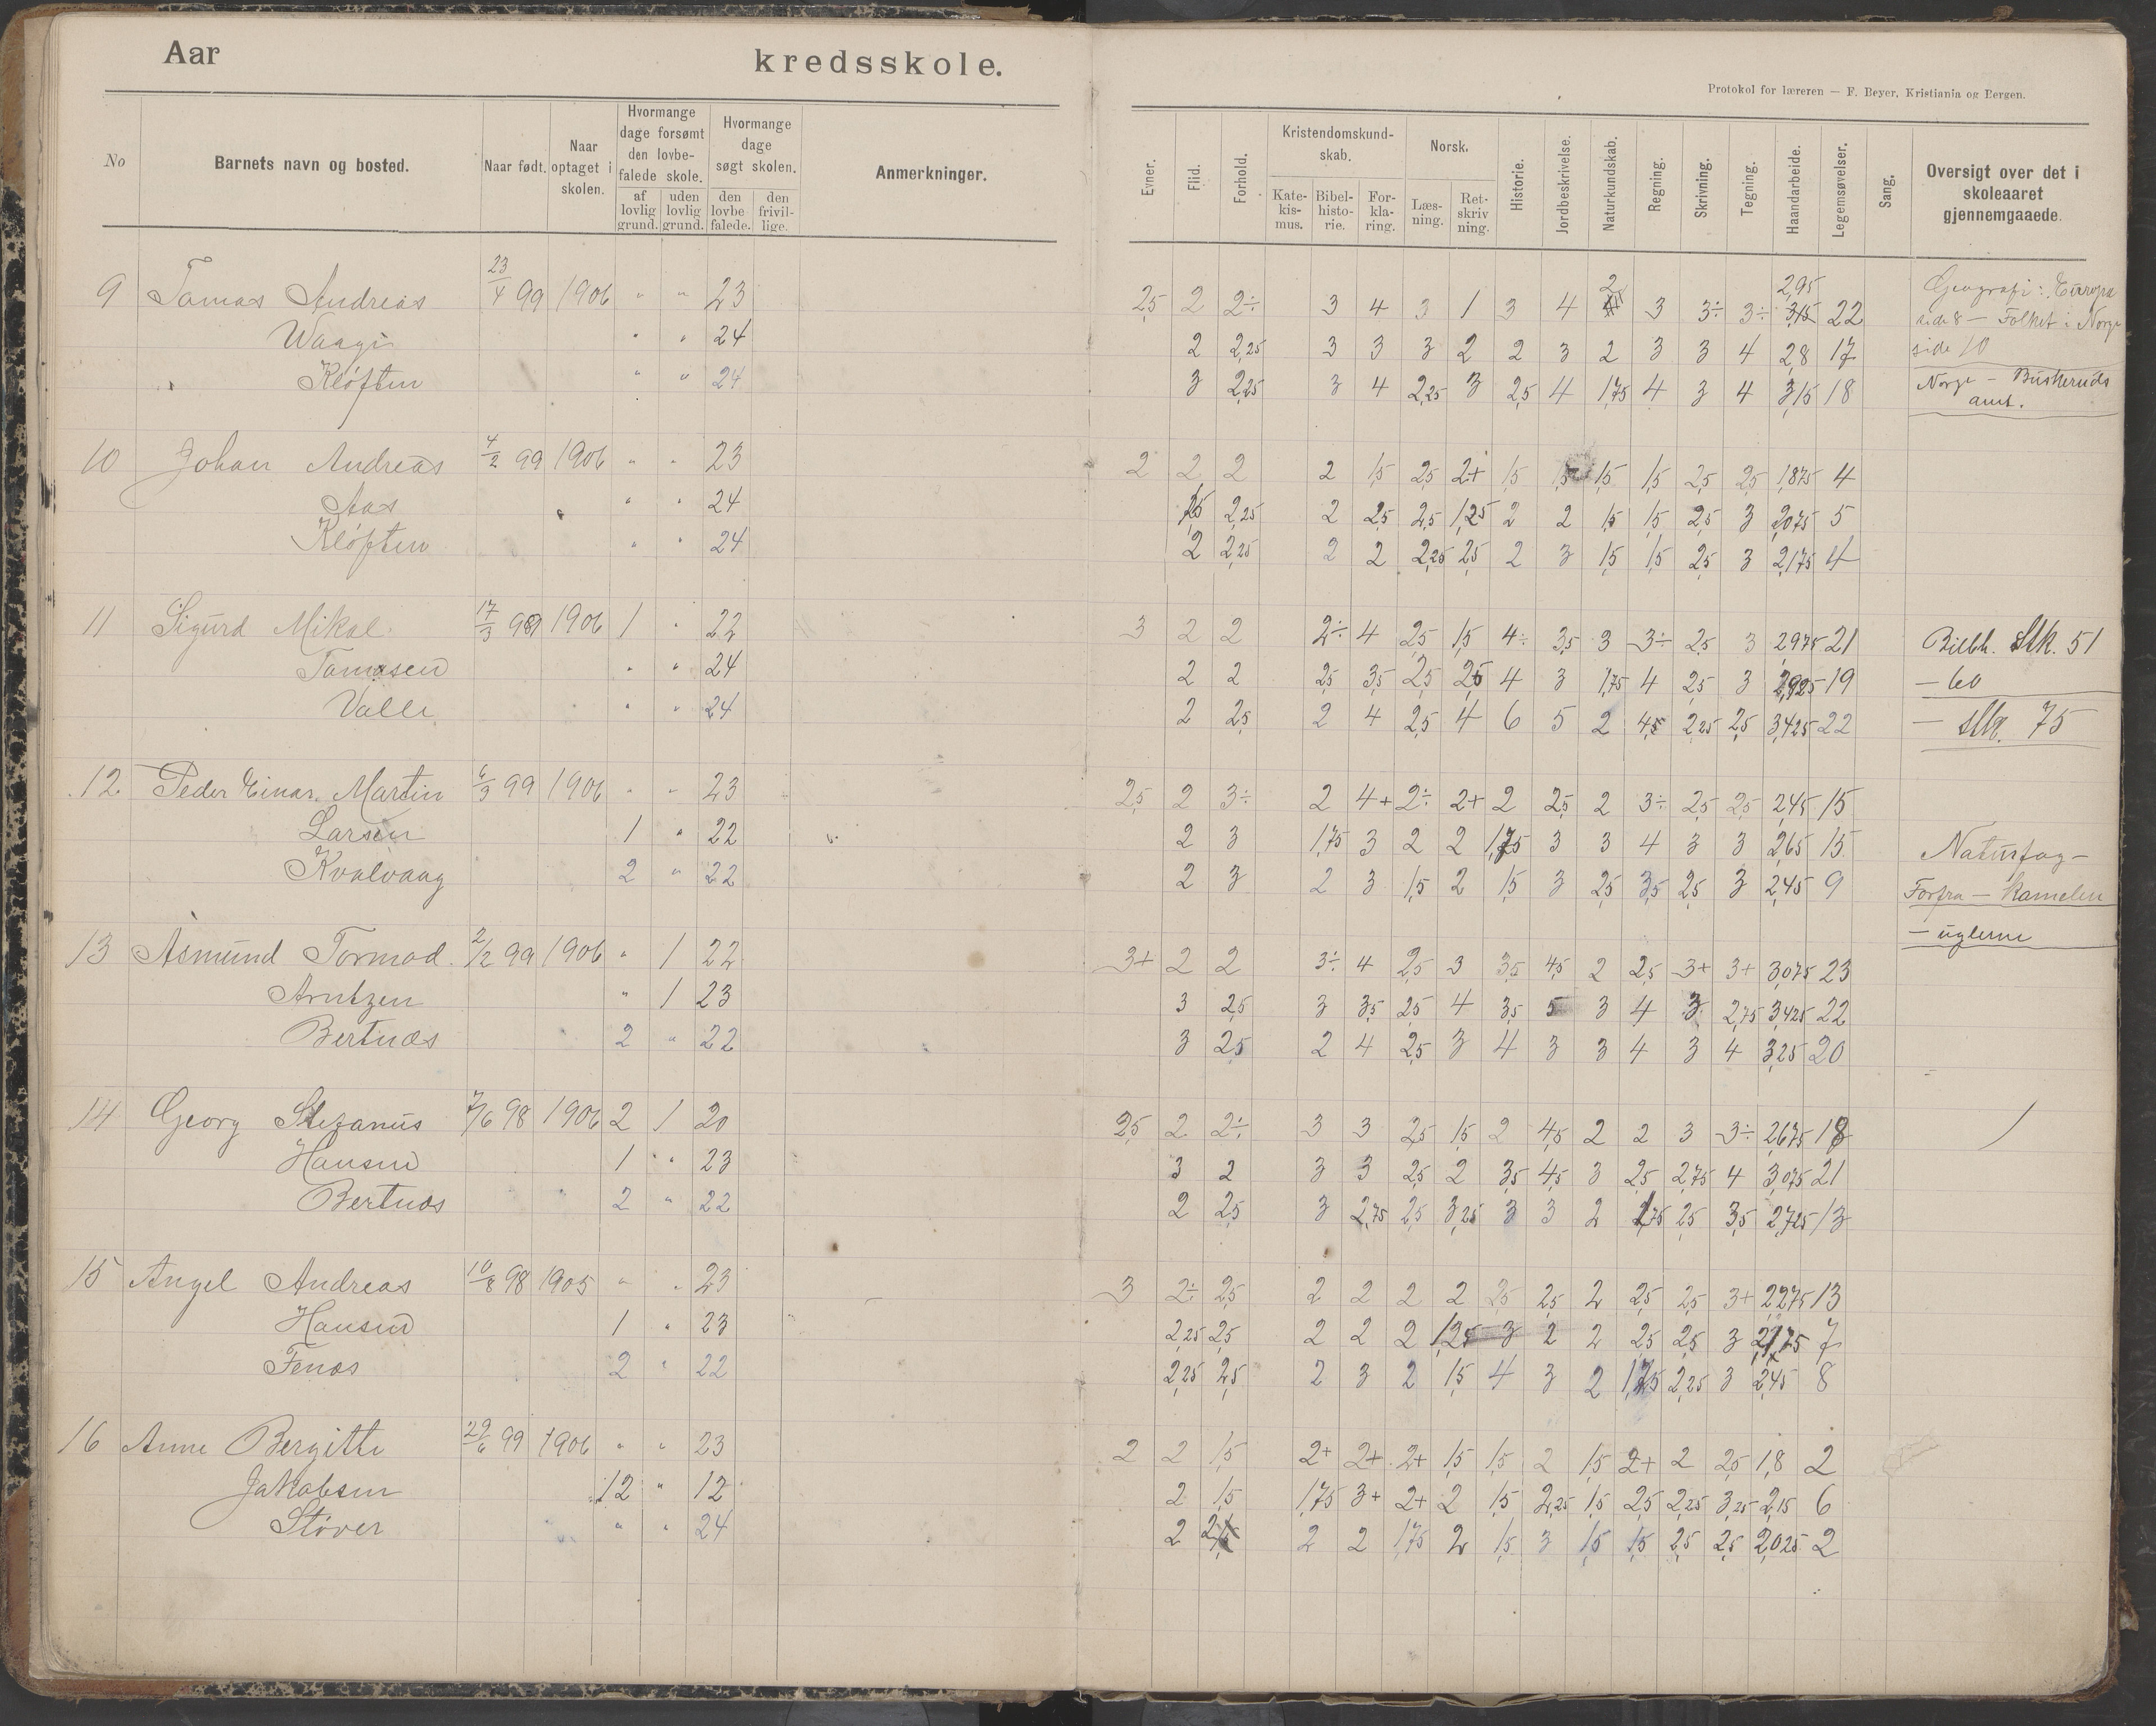 Aar kredsskole.
Protokol for læreren — F. Beyer, Kristiania og Bergen.
No Barnets navn og bosted. Naar født. Naar optaget i skolen. Hvormange dage forsømt den lovbefalede skole. af lovlig grund. uden lovlig grund. Hvormange dage søgt skolen. den lovbefalede. den frivillige. Anmerkninger.
Evner. Flid. Forhold. Kristendomskundskab. Katekismus. Bibelhistorie. Forklaring. Norsk. Læsning. Retskrivning. Historie. Jordbeskrivelse. Naturkundskab. Regning. Skrivning. Tegning. Haandarbeide. Legemsøvelser. Sang. Oversigt over det i skoleaaret gjennemgaaede.
9 Tomas Andreas 23/4 99 1906 " " 23 2,5 2 2÷ 3 4 3 1 3 4 2 3 3÷ 3÷ 2,95 22 Geografi: Europa
Waagi " " 24 2 2,25 3 3 3 2 2 3 2 3 3 4 2,8 17 side 8 — Folket i Norge side 10
Kløften " " 24 3 2,25 3 4 2,25 3 2,5 4 1,75 4 3 4 3,15 18 Norge — Buskeruds amt.
10 Johan Andreas 4/2 99 1906 " " 23 2 2 2 2 1,5 2,5 2+ 1,5 1,5 1,5 1,5 2,5 2,5 1,875 4
Aas " " 24 1,5 2,25 2 2,5 2,5 1,25 2 2 1,5 1,5 2,5 3 2,075 5
Kløften " " 24 2 2,25 2 2 2,25 2,5 2 3 1,5 1,5 2,5 3 2,175 4
11 Sigurd Mikal 17/3 99 1906 1 " 22 3 2 2 2÷ 4 2,5 1,5 4÷ 3,5 3 3÷ 2,5 3 2,975 21 Bibelh. stk. 51
Tomasen " " 24 2 2 2,5 3,5 2,5 2,5 4 3 1,75 4 2,5 3 2,925 19 — 60
Valle " " 24 2 2,5 2 4 2,5 4 6 5 2 4,5 2,25 2,5 3,425 22 — stk. 75
12 Peder Einar Martin 6/3 99 1906 " " 23 2,5 2 3÷ 2 4+ 2÷ 2+ 2 2,5 2 3÷ 2,5 2,5 2,45 15
Larsen 1 " 22 2 3 1,75 3 2 2 1,75 3 3 4 3 3 2,65 15 Naturfag —
Kvalvaag 2 " 22 2 3 2 3 1,5 2 1,5 3 2,5 3,5 2,5 3 2,45 9 Forfra — Kamelen
— uglerne
13 Asmund Tormod 2/2 99 1906 " 1 22 3+ 2 2 3÷ 4 2,5 3 3,5 4,5 2 2,5 3+ 3+ 3,075 23
Arntzen " 1 23 3 2,5 3 3,5 2,5 4 3,5 5 3 4 3 2,75 3,425 22
Bertnæs 2 " 22 3 2,5 2 4 2,5 3 4 3 3 4 3 4 3,25 20
14 Georg Stefanus 7/6 98 1906 2 1 20 2,5 2 2÷ 3 3 2,5 1,5 2 4,5 2 2 3 3÷ 2,675 18
Hansen 1 " 23 3 2 3 3 2,5 2 3,5 4,5 3 2,5 2,75 4 3,075 21
Bertnæs 2 " 22 2 2,5 3 2,75 2,5 3,25 3 3 2 1,75 2,5 3,5 2,725 13
15 Angel Andreas 10/8 98 1905 " " 23 3 2÷ 2,5 2 2 2 2 2,5 2,5 2 2,5 2,5 3+ 2,275 13
Hansen 1 " 23 2,25 2,5 2 2 2 1,25 3 2 2 2,5 2,5 3 2,175 7
Fenæs 2 " 22 2,25 2,5 2 3 2 1,5 4 3 2 1,75 2,25 3 2,45 8
16 Anne Bergitte 29/6 99 1906 " " 23 2 2 1,5 2+ 2+ 2+ 1,5 1,5 2 1,5 2+ 2 2,5 1,8 2
Jakobsen 12 " 12 2 1,5 1,75 3+ 2+ 2 1,5 2,25 1,5 2,5 2,25 3,25 2,15 6
Støver " " 24 2 2 2 1,75 2 1,5 3 1,5 1,5 2,5 2,5 2,025 2